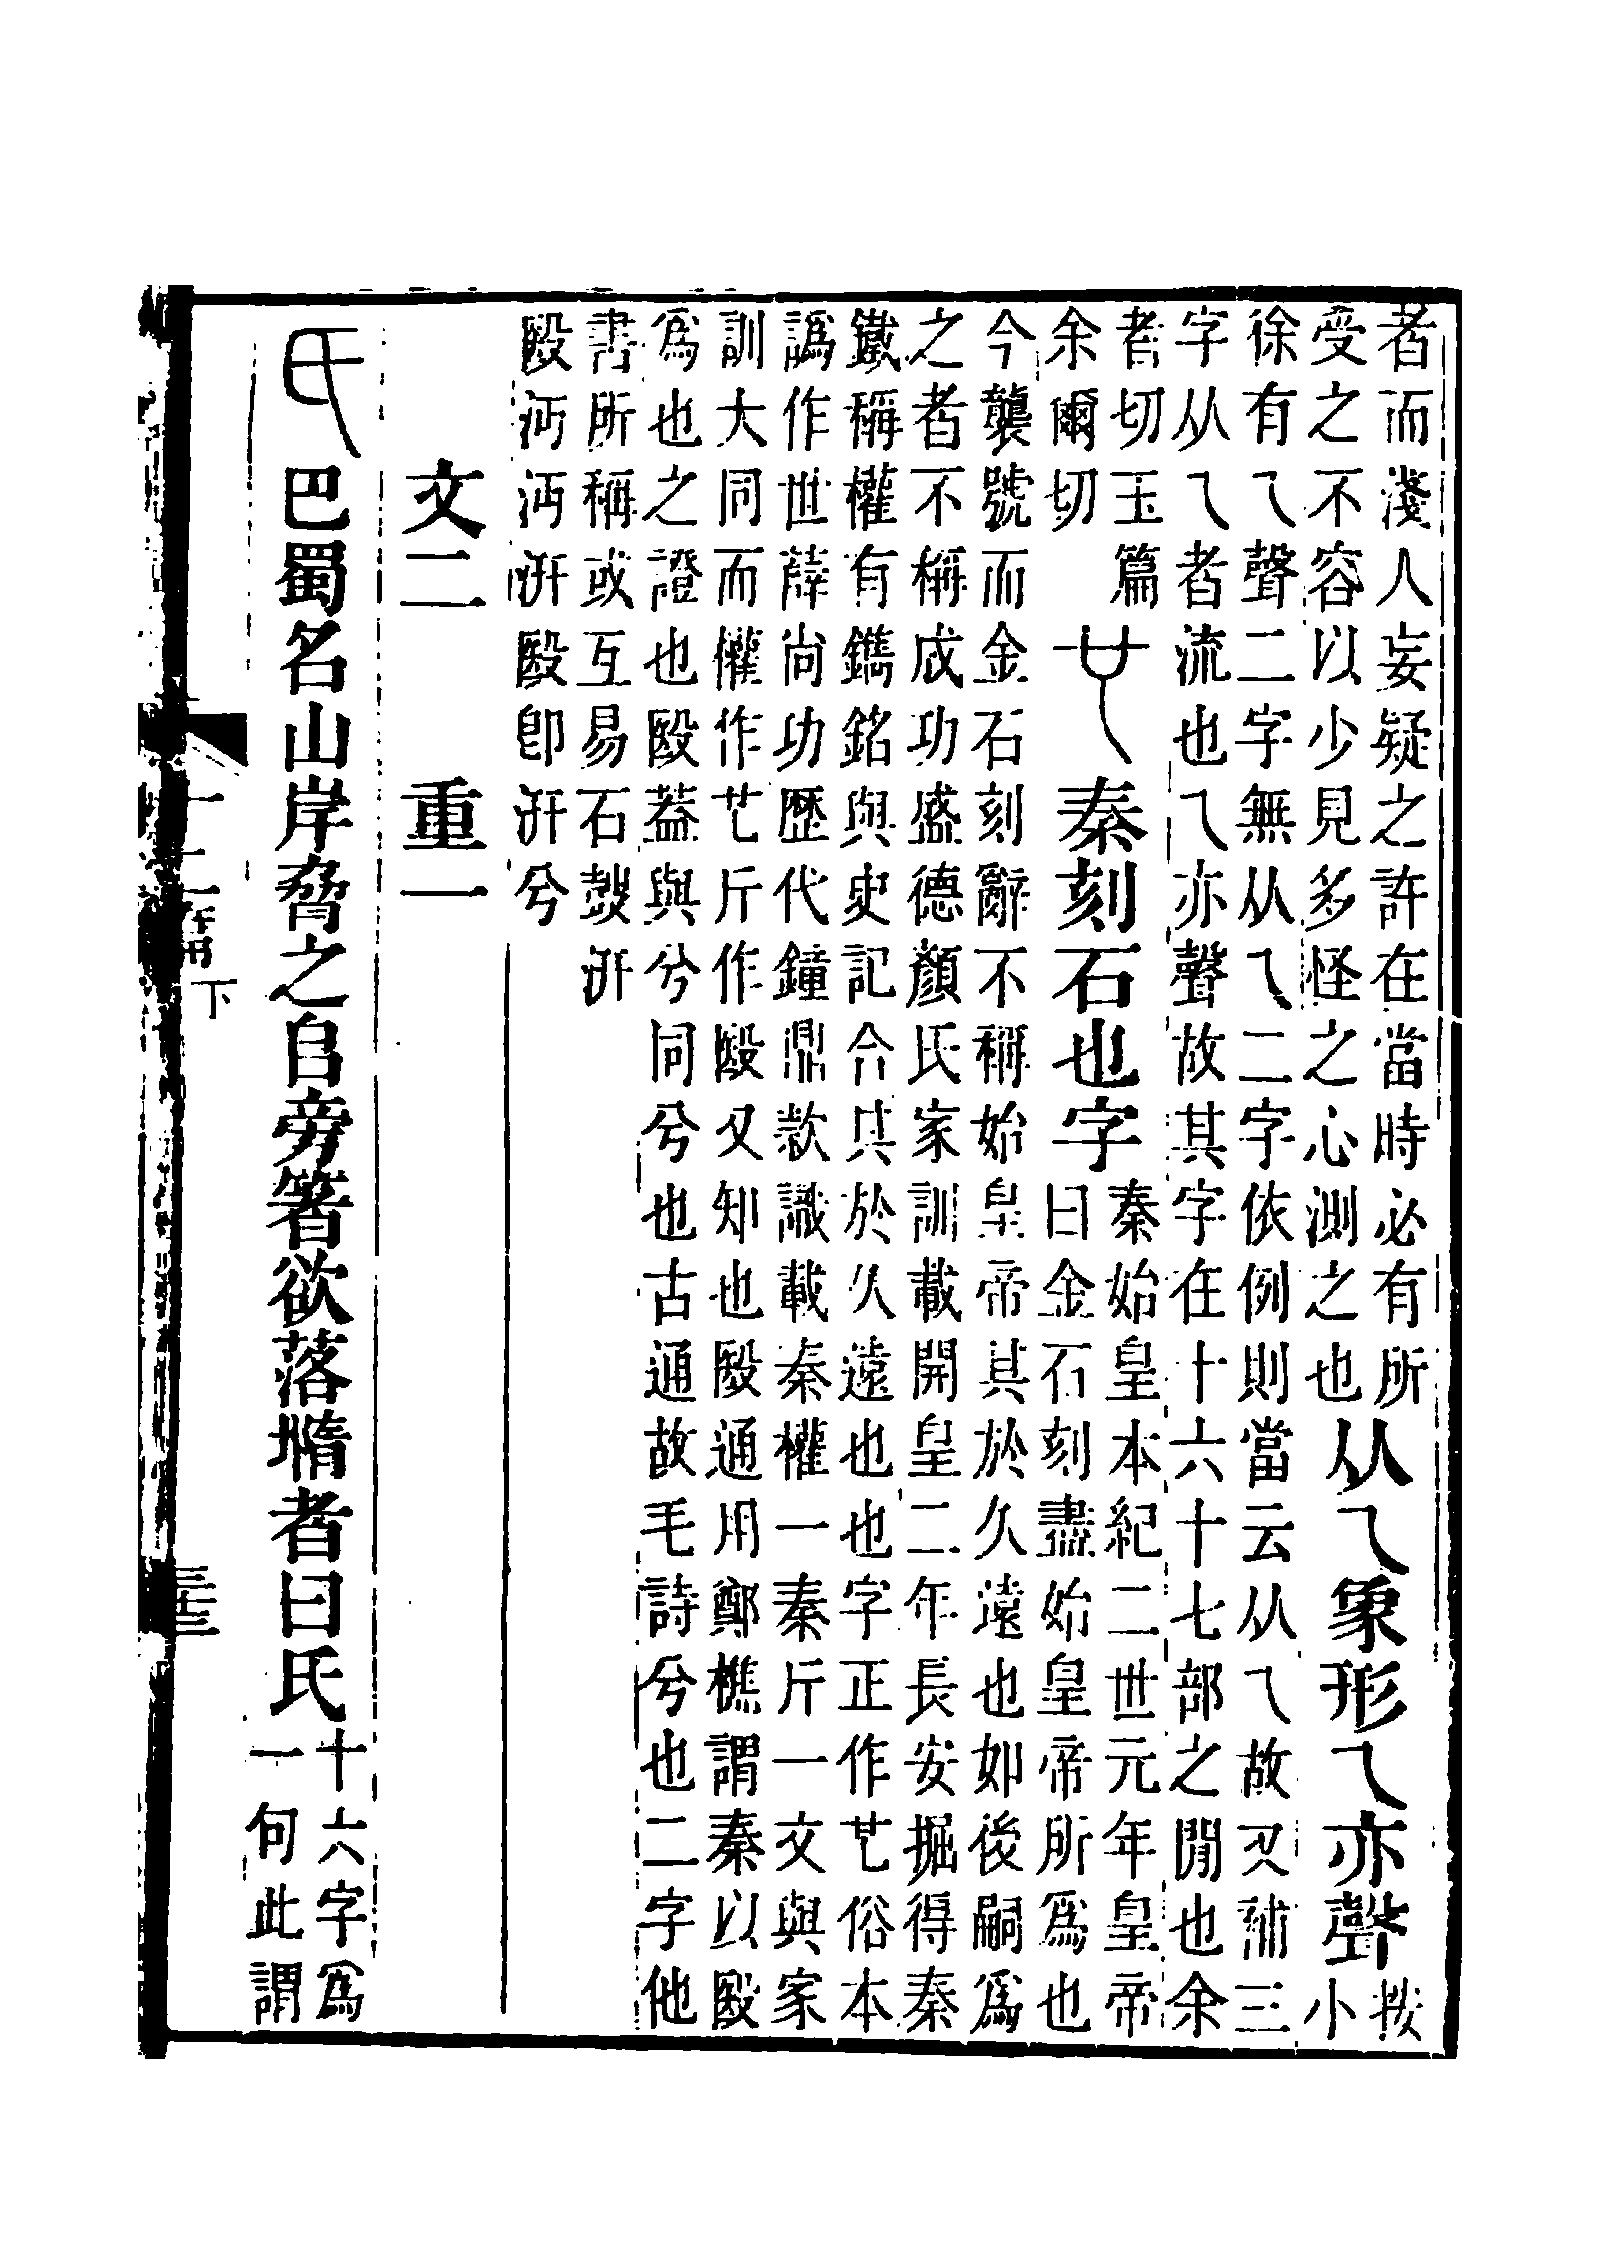 者而淺人妄疑之許在當時必有所
受之不容以少見多怪之心測之也
从乁象形乁亦聲
按
小
徐有乁聲二字無从乁二字依例則當云从乁故又補三
字从乁者流也乁亦聲故其字在十六十七部之閒也余
者切玉篇
余爾切
秦刻石也字
秦始皇本紀二世元年皇帝
曰金石刻盡始皇帝所爲也
今襲號而金石刻辭不稱始皇帝其於久遠也如後嗣爲
之者不稱成功盛德顏氏家訓載開皇二年長安掘得秦
鐵稱權有鐫銘與史記合其於久遠也也字正作𠃟俗本
譌作世薛尚功歷代鐘鼎款識載秦權一秦斤一文與家
訓大同而權作𠃟斤作殹又知也殹通用鄭樵謂秦以殹
爲也之證也殹葢與兮同兮也古通故毛詩兮也二字他
書所稱或互易石鼓汧
殹沔沔汧殹卽汧兮
文二　重一
氏 巴蜀名山岸脅之𠂤旁箸欲落𡐦者曰氏
十六字爲
一句此謂
十二篇下
三十三